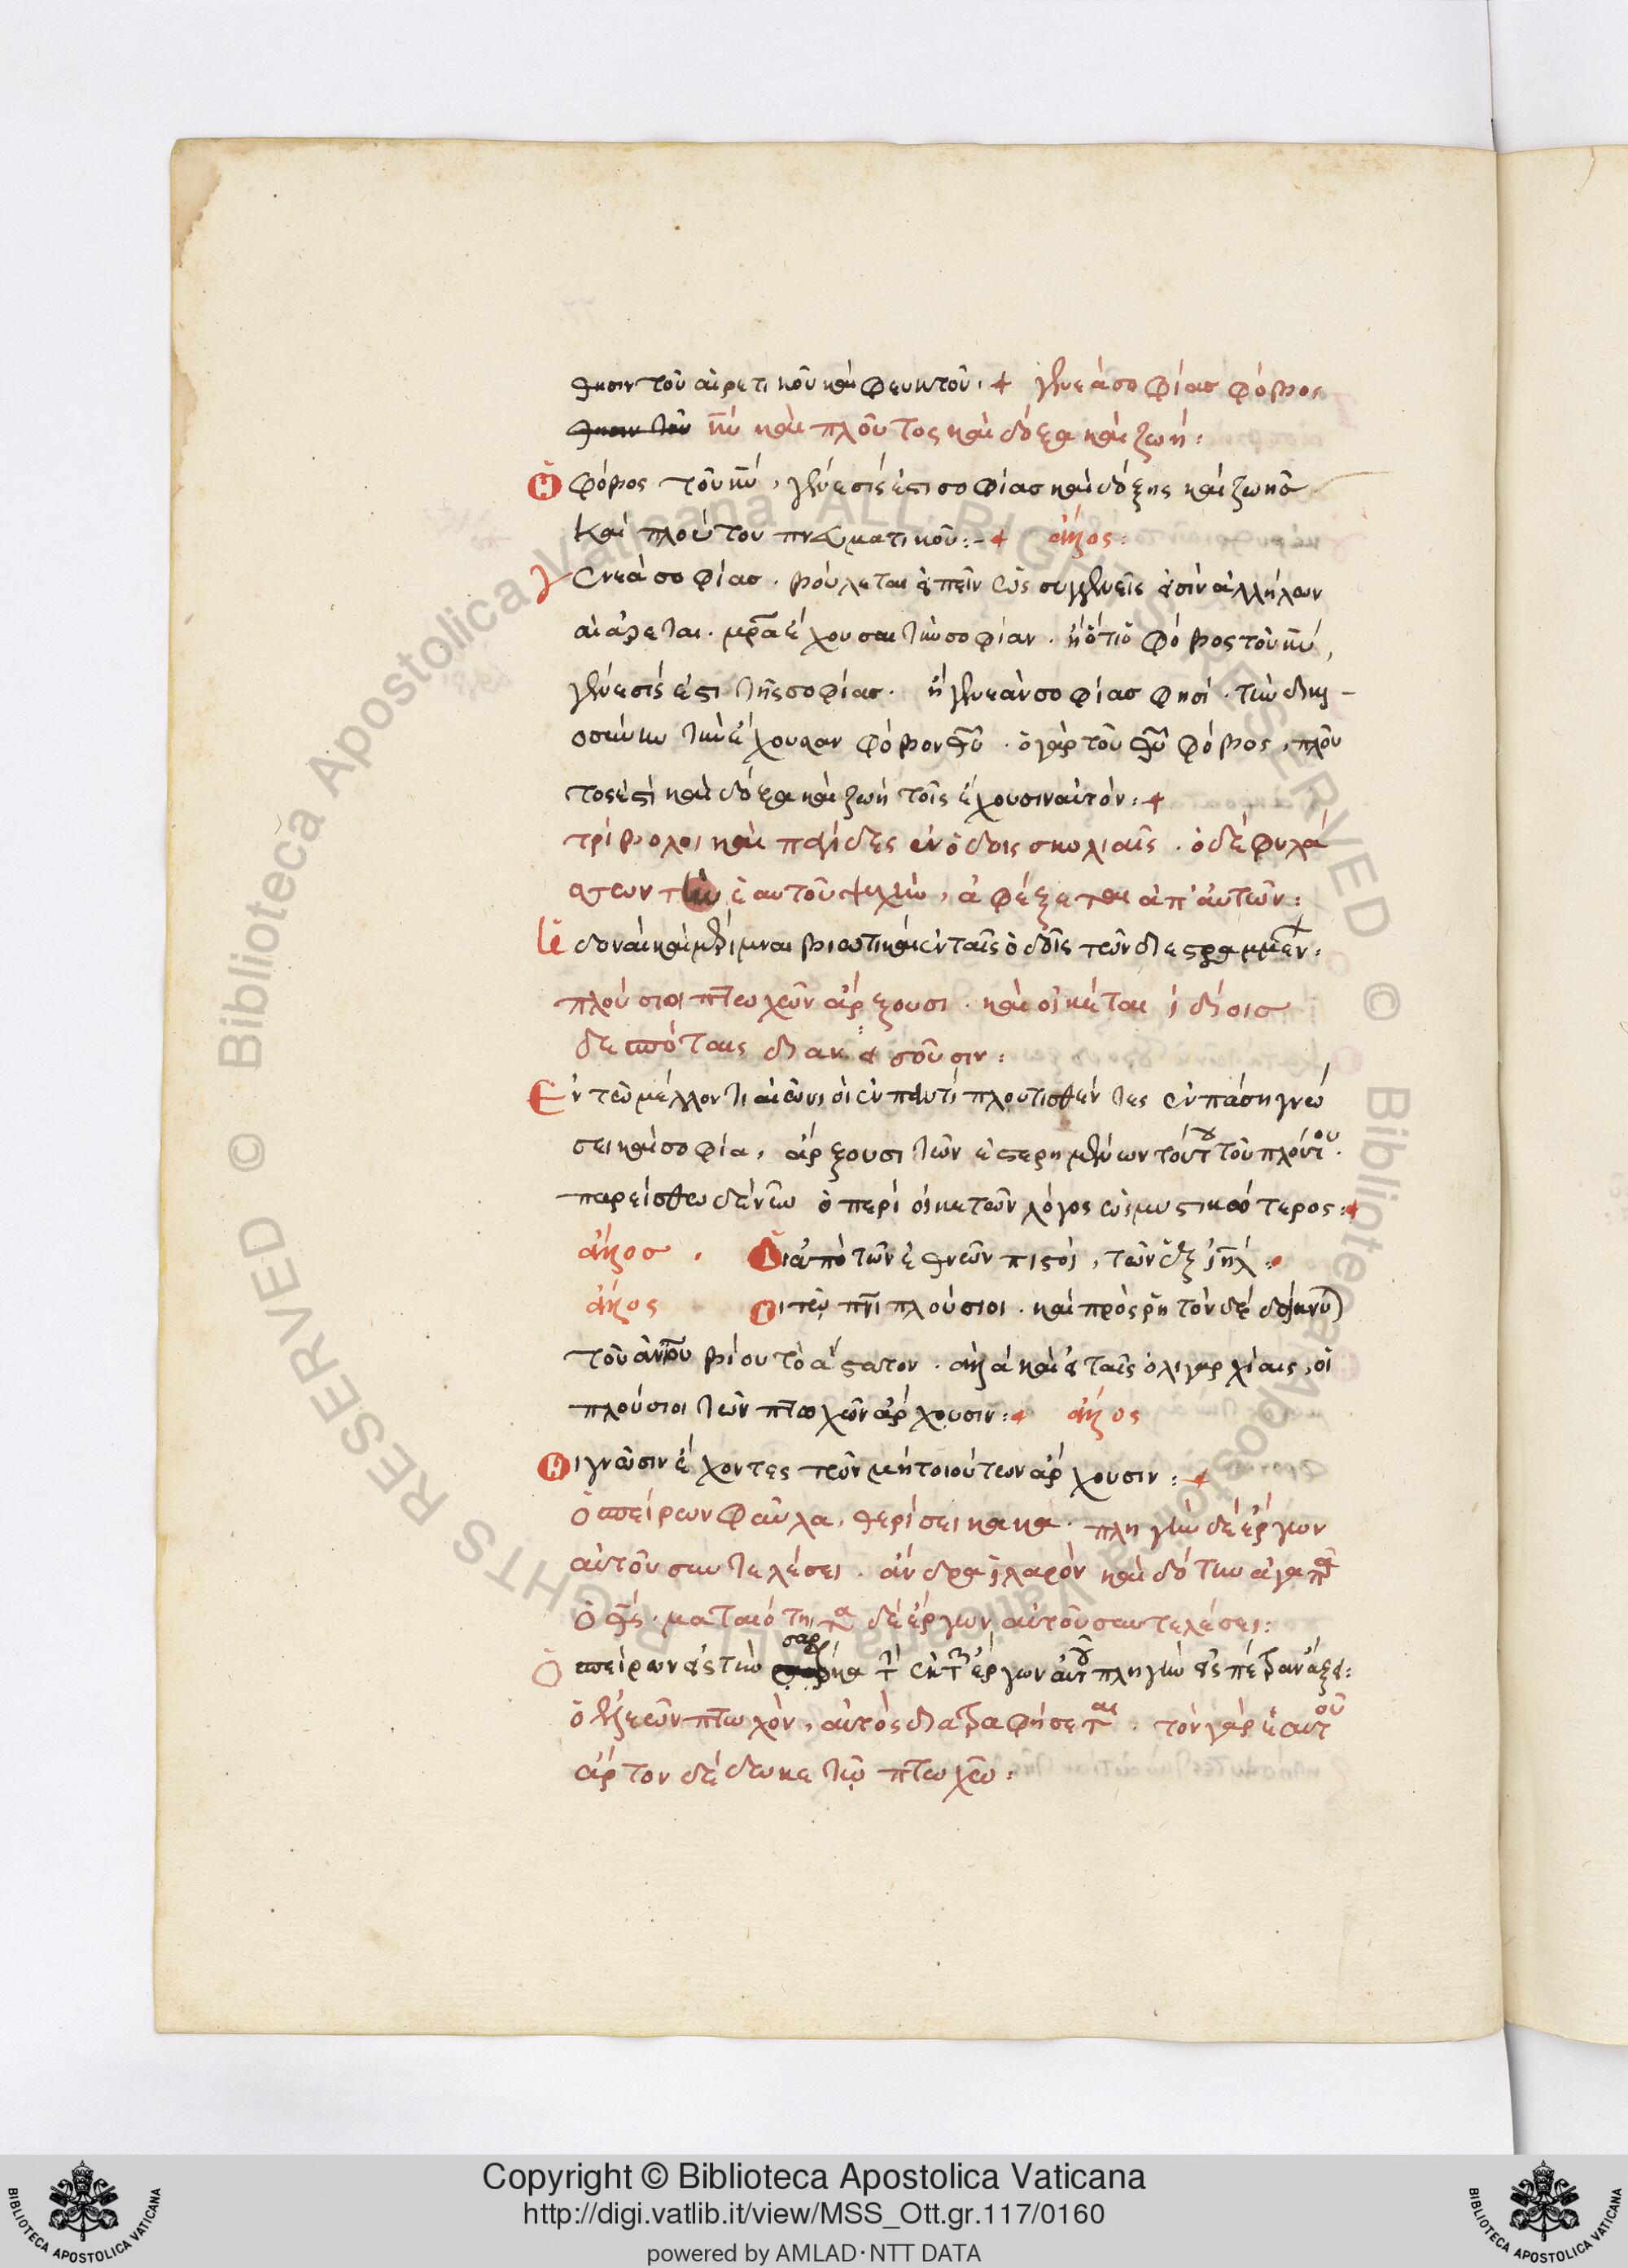 θησιν τοῦ αἱρετικοῦ καὶ φευκτοῦ. γενεὰ σοφίας φόβος
κυ καὶ πλοῦτος καὶ δόξα καὶ ζωή:
Ὁ φόβος τοῦ κυ, γέννεσίς ἐστι σοφίας καὶ δόξης καὶ ζωῆς
καὶ πλούτου πνευματικοῦ:- ἄλλος:
γενεὰ σοφίας. βούλεται εἰπεῖν ὡς συγγενεῖς εἰσὶν ἀλλήλων
αἱ ἀρεταὶ. μρα ἔχουσαι τὴν σοφίαν. ἢ ὅτι ὁ φόβος τοῦ κυ,
γέννεσίς ἐστι τῆς σοφίας. ἢ γενεὰν σοφίας φησί. τὴν δικαι-
οσύνην τὴν ἔχουσαν φόβον θυ. ὁ γὰρ τοῦ θυ φόβος, πλοῦ
τος ἐστὶ καὶ δόξα καὶ ζωὴ τοῖς ἔχουσιν αὐτόν:
τρίβολοι καὶ παγίδες ἐν ὁδοῖς σκολιαῖς. ὁ δὲ φυλά
σσων τὴν ἑαυτοῦ ψυχὴν, ἀφέξεται ἀπ' αὐτῶν:
ἡδοναὶ καὶ μέριμναι βιωτικαὶ ἐν ταῖς ὁδοῖς τῶν διεστραμμέν:
πλούσιοι πτωχῶν ἄρξουσι. καὶ οἰκέται ἰδίοις
δεσπόταις δανισοῦσιν:
Ἐν τῷ μέλλοντι αἰῶνι οἱ ἐν παντὶ πλουτισθέντες ἐν πάσῃ γνώ
σει καὶ σοφία, ἄρξουσι τῶν ἐστερημένων τούτου τοῦ πλούτου.
παρείσθω δὲ νῦν ὁ περὶ οἰκετῶν λόγος ὡς μυστικώτερος:
ἄλλος. Οἱ ἀπὸ τῶν ἐθνῶν πιστοὶ, τῶν ἐξ ιηλ:
ἄλλος Οἱ τῷ πνι πλούσιοι. καὶ πρὸς ῥητὸν δὲ δείκνυ
τοῦ ανου βίου τὸ ἄστατον. ἀλλὰ καὶ ἐ ταῖς ὀλιγαρχίαις, οἱ
πλούσιοι τῶν πτωχῶν ἄρχουσιν: ἄλλος
Οἱ γνῶσιν ἔχοντες τῶν μὴ τοιούτων ἄρχουσιν:
Ὁ σπείρων φαῦλα, θερίσει κακά. πληγὴν δὲ ἔργων
αὐτοῦ συντελέσει. ἄνδρα ἱλαρὸν καὶ δότην ἀγαπᾶ
ὁ θς. ματαιότητα δὲ ἔργων αὐτοῦ συντελέσει:
Ὁ σπείρων εἰς τὴν σάρκα ἐκ τῶν ἔργων αὐτοῦ πληγὴν εἰς πέρας ἄξει:
ὁ ἐλεῶν πτωχὸν, αὐτὸς διατραφήσεται. τὸν γὰρ ἑαυτοῦ
ἄρτον δέδωκε τῷ πτωχῷ:
Copyright © Biblioteca Apostolica Vaticana
http://digi.vatlib.it/view/MSS_Ott.gr.117/0160
powered by AMLAD·NTT DATA